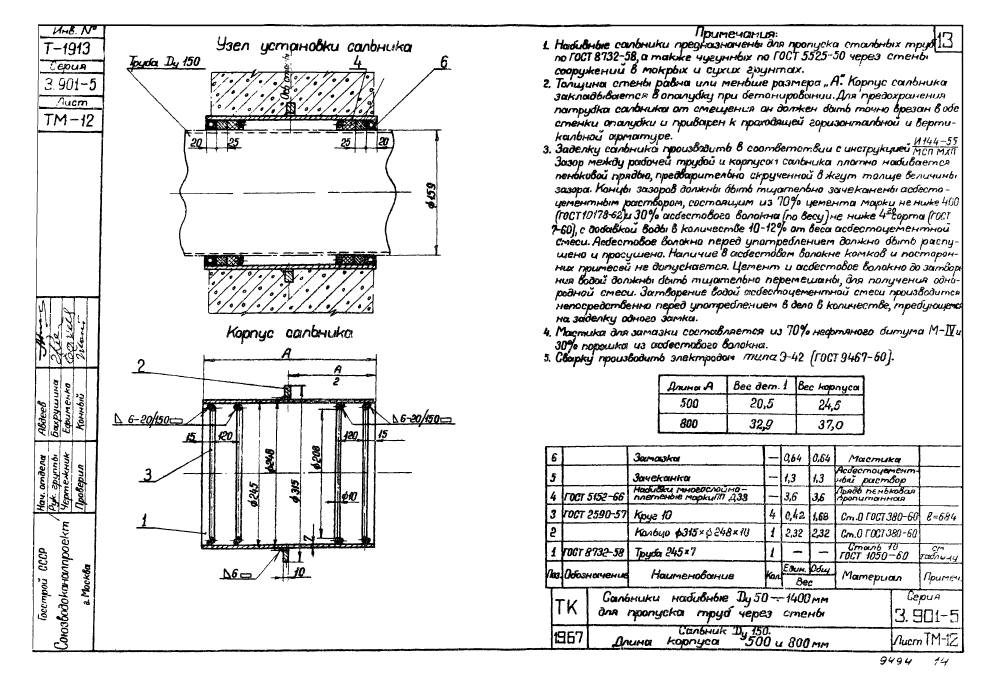 Инв. №
Т-1913
Серия
3.901-5
Лист
ТМ-12
Нач. отдела Авдеев
Рук. группы Вахрушина
Чертежник Ефименко
Проверил Конный
Госстрой СССР
Союзводоканалпроект
г. Москва
Узел установки сальника
Труба Ду 150
4
6
20
25
25
20
ф159
Корпус сальника
А
А
2
2
6-20/150
6-20/150
15
120
120
15
3
1
ф245
ф248
ф315
ф208
ф10
7
6
10
13
Примечания:
1. Набивные сальники предназначены для пропуска стальных труб
по ГОСТ 8732-58, а также чугунных по ГОСТ 5525-50 через стены
сооружений в мокрых и сухих грунтах.
2. Толщина стены равна или меньше размера „А". Корпус сальника
закладывается в опалубку при бетонировании. Для предохранения
патрубка сальника от смещения он должен быть точно врезан в обе
стенки опалубки и приварен к проходящей горизонтальной и верти-
кальной арматуре.
3. Заделку сальника производить в соответствии с инструкцией И144-55
МСП МХП
Зазор между рабочей трубой и корпусом сальника плотно набивается
пеньковой прядью, предварительно скрученной в жгут толще величины
зазора. Концы зазоров должны быть тщательно зачеканены асбесто-
цементным раствором, состоящим из 70% цемента марки не ниже 400
(ГОСТ 10178-62) и 30% асбестового волокна (по весу) не ниже 4го сорта (ГОСТ
7-60), с добавкой воды в количестве 10-12% от веса асбестоцементной
смеси. Асбестовое волокно перед употреблением должно быть распу-
шено и просушено. Наличие в асбестовом волокне комков и посторон-
них примесей не допускается. Цемент и асбестовое волокно до затворе-
ния водой должны быть тщательно перемешаны, для получения одно-
родной смеси. Затворение водой асбестоцементной смеси производится
непосредственно перед употреблением в дело в количестве, требующемся
на заделку одного замка.
4. Мастика для замазки составляется из 70% нефтяного битума М-IV и
30% порошка из асбестового волокна.
5. Сварку производить электродом типа Э-42 (ГОСТ 9467-60).
Длина А Вес дет. 1 Вес корпуса
500 20,5 24,5
800 32,9 37,0
6 Замазка — 0,64 0,64 Мастика
5 Зачеканка — 1,3 1,3 Асбестоцемент-ный раствор
4 ГОСТ 5152-66 Набивки многослойно-плетеные марки ПП д.33 — 3,6 3,6 Прядь пеньковая пропитанная
3 ГОСТ 2590-57 Круг 10 4 0,42 1,68 Ст.0 ГОСТ 380-60 ℓ=684
2 Кольцо ф315×ф248×10 1 2,32 2,32 Ст.0 ГОСТ 380-60
1 ГОСТ 8732-58 Труба 245×7 1 — — Сталь 10 ГОСТ 1050-60 см таблицу
Поз. Обозначение Наименование Кол. Един. Общ. Вес Материал Примеч.
ТК
1967
Сальники набивные Ду 50—1400 мм
для пропуска труб через стены
Сальник Ду 150.
Длина корпуса 500 и 800 мм
Серия
3.901-5
Лист ТМ-12
9494 14